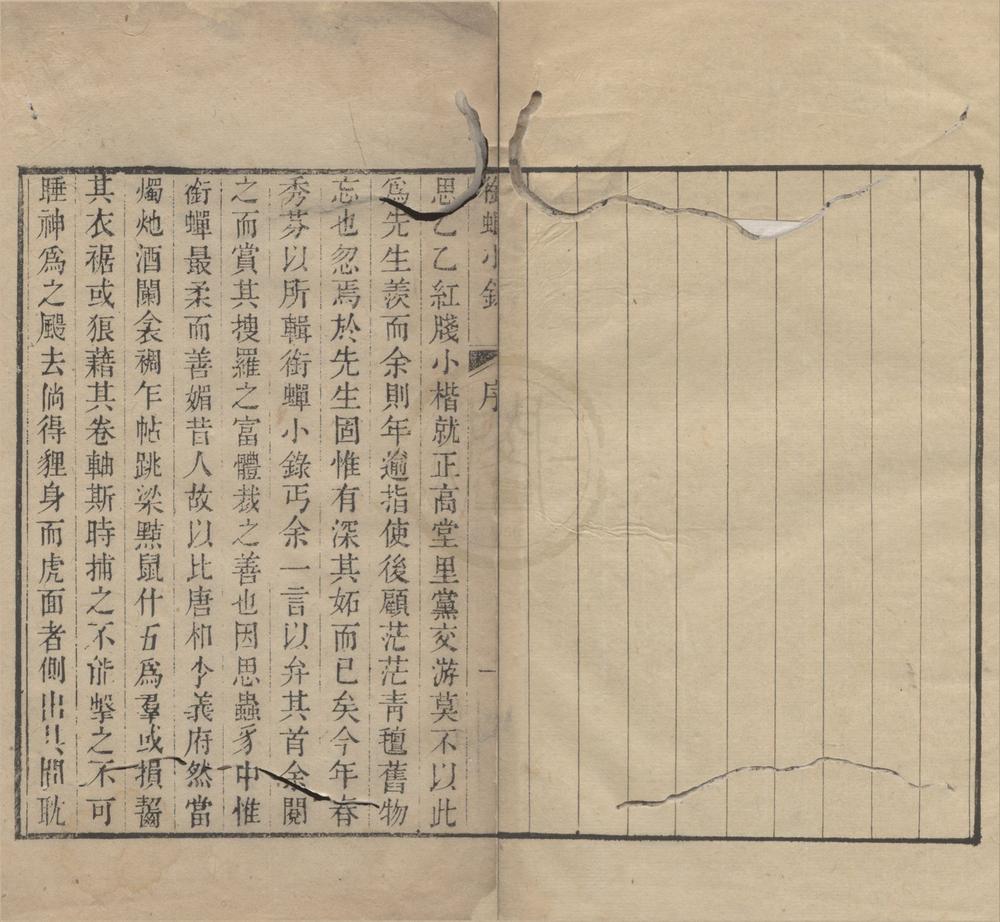 銜蟬小錄 序 一
思乙乙紅牋小楷就正高堂里黨交游莫不以此
爲先生羨而余則年逾指使後顧茫茫靑氊舊物
忘也忽焉於先生固惟有深其妬而已矣今年春
秀芬以所輯銜蟬小錄丐余一言以弁其首余閱
之而賞其搜羅之富體裁之善也因思蟲豸中惟
銜蟬最柔而善媚昔人故以比唐相李義府然當
燭灺酒闌衾裯乍帖跳梁黠鼠什五爲羣或損齧
其衣裾或狼藉其卷軸斯時捕之不能擊之不可
睡神爲之颺去倘得貍身而虎面者側出其間耽